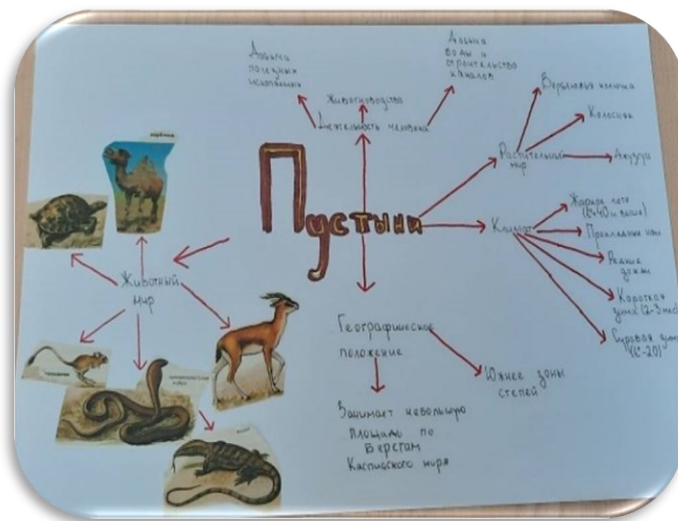 Добыча
полезных
ископаемых
Животноводство
Добыча
воды и
строительство
каналов
Деятельность человека
Пустыни
Растительный
мир
Верблюжья колючка
Колосняк
Джузгун
Климат
Жаркое лето
Прохладные ночи
Редкие
дожди
Короткая
зима (2-3 мес)
Суровая зима
(t°-20)
Животный
мир
верблюд
Географическое
положение
Южнее зоны
степей
Занимает небольшую
площадь по
берегам
Каспийского моря